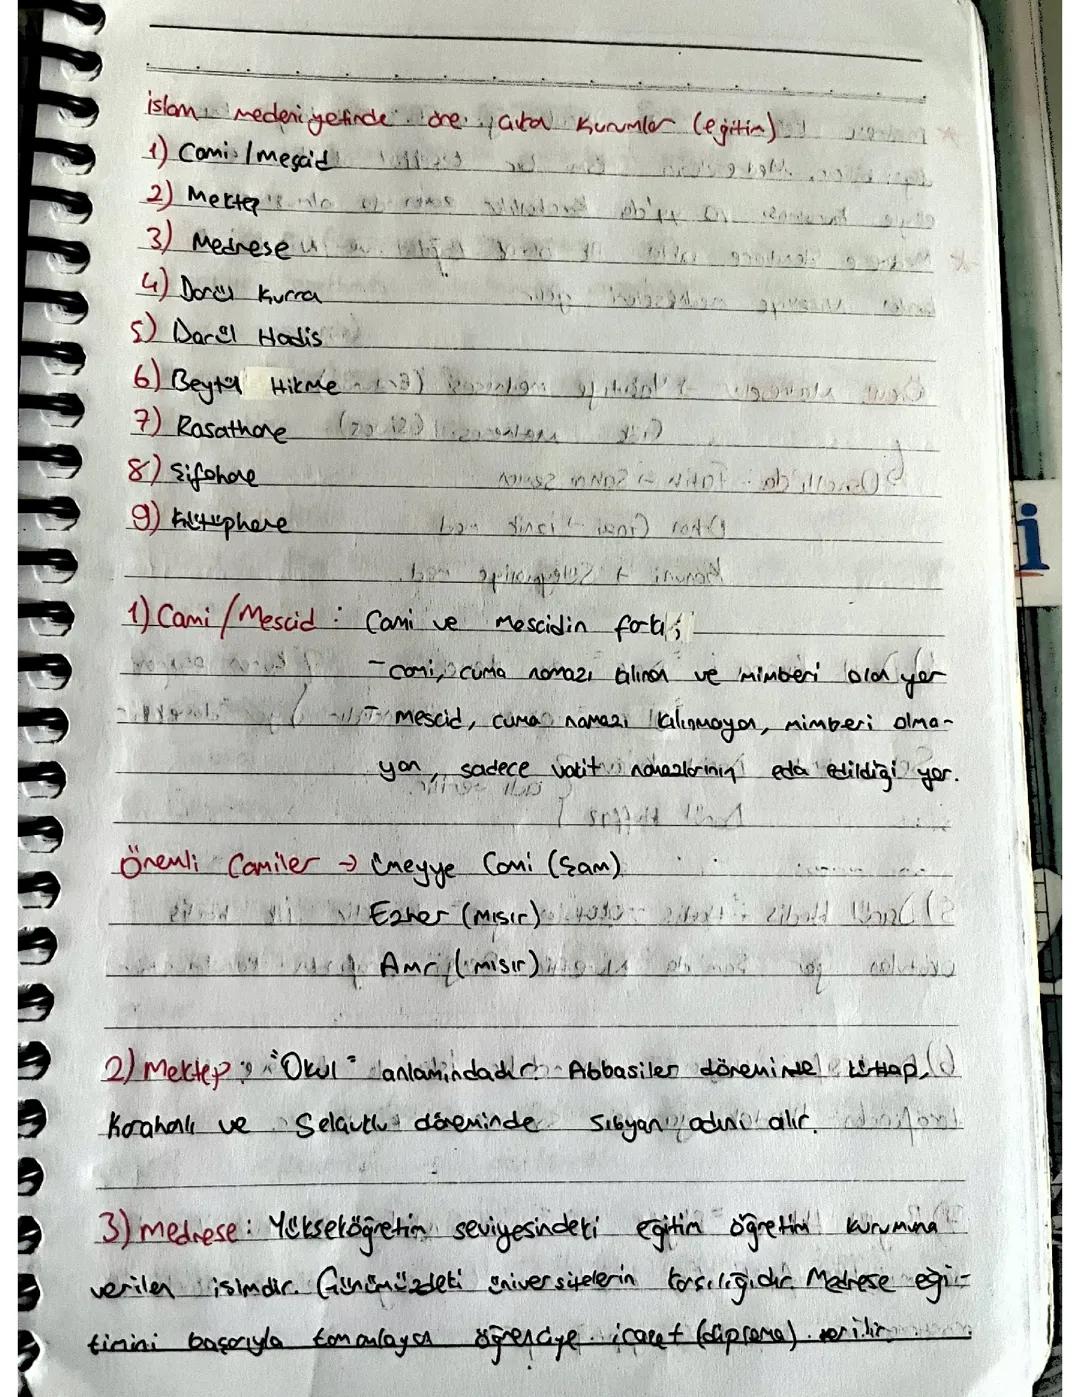 islam medeniyetinde öne çıkan kurumlar (eğitim)
1) Cami / mescid
2) Mektep
3) Medrese
4) Darül Kurra
5) Darül Hadis
6) Beytül Hikme
7) Rasathane
8) Şifahane
9) Kütüphane
1) Cami / Mescid : Cami ve Mescidin farkı;
- cami, cuma namazı kılınan ve mimberi olan yer
- mescid, cuma namazı kılınmayan, mimberi olma-
yan, sadece vakit namazlarının eda edildiği yer.
Önemli Camiler → Ümeyye Cami (Şam)
Ezher (mısır)
Amr (mısır)
2) Mektep : "Okul" anlamındadır. Abbasiler döneminde küttap,
Karahanlı ve Selçuklu döneminde sıbyan adını alır.
3) medrese : Yükseköğretim seviyesindeki eğitim öğretim kurumuna
verilen isimdir. Günümüzdeki üniversitelerin karşılığıdır. Medrese eği-
timini başarıyla tamamlayan öğrenciye icazet (diploma) verilir.
i